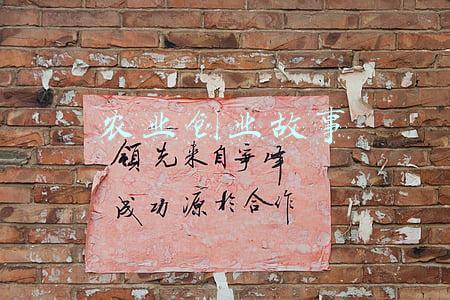 农业创业故事
领先来自争峰
成功源於合作